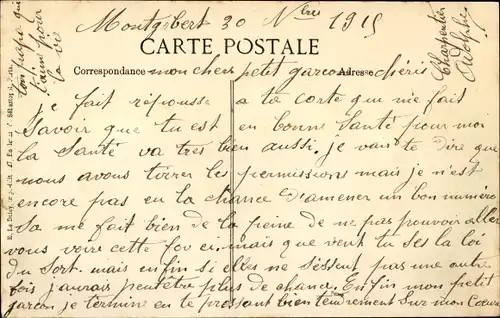 Montgobert 30 9bre 1915
CARTE POSTALE
Correspondance Adresse
mon cher petit garcon chéris
je fait réponsse a ta carte que me fait
Savoir que tu est en bonne Santé pour moi
la Santé va très bien aussi. je vais te dire que
nous avous tirrer les permissions mais je n'est
encore pas eu la chance d'amener un bon numéro
Sa me fait bien de la peine de ne pas pouvoir aller
vous voire cette fois ci. mais que veut tu ses la loi
du sort. mais en fin si elles ne s'essent pas une autre
fois j'aurais peutetre plus de chance. En fin mon petit
garcon je termine en te pressant bien tendrement Sur mon Cœur
ton papa qui
t'aime pour
la vie
Charpentier
Adolphe